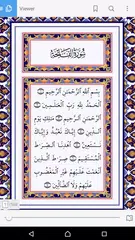 Viewer
سورة الفاتحة
بسم الله الرحمن الرحيم ۝
الحمد لله رب العالمين ۝
الرحمن الرحيم ۝ مالك يوم
الدين ۝ إياك نعبد وإياك
نستعين ۝ اهدنا الصراط
المستقيم ۝ صراط الذين
أنعمت عليهم غير المغضوب
عليهم ولا الضالين ۝